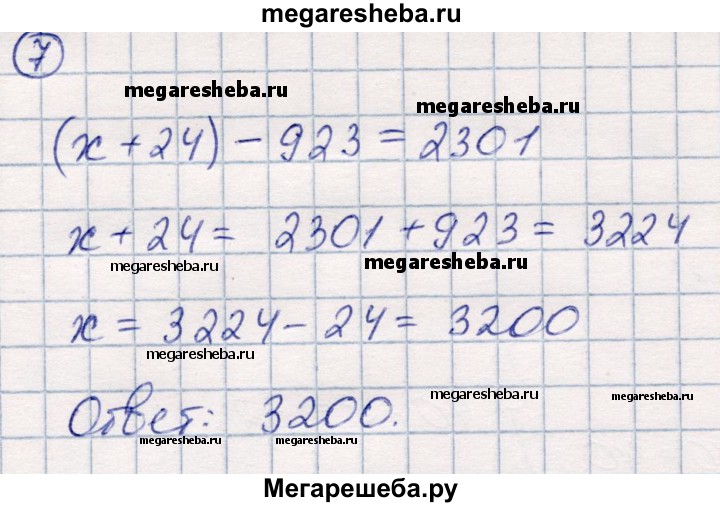 megaresheba.ru
7
megaresheba.ru
megaresheba.ru
(x + 24) - 923 = 2301
x + 24 = 2301 + 923 = 3224
megaresheba.ru
megaresheba.ru
x = 3224 - 24 = 3200
megaresheba.ru
megaresheba.ru
megaresheba.ru
Ответ: 3200.
megaresheba.ru
megaresheba.ru
Мегарешеба.ру